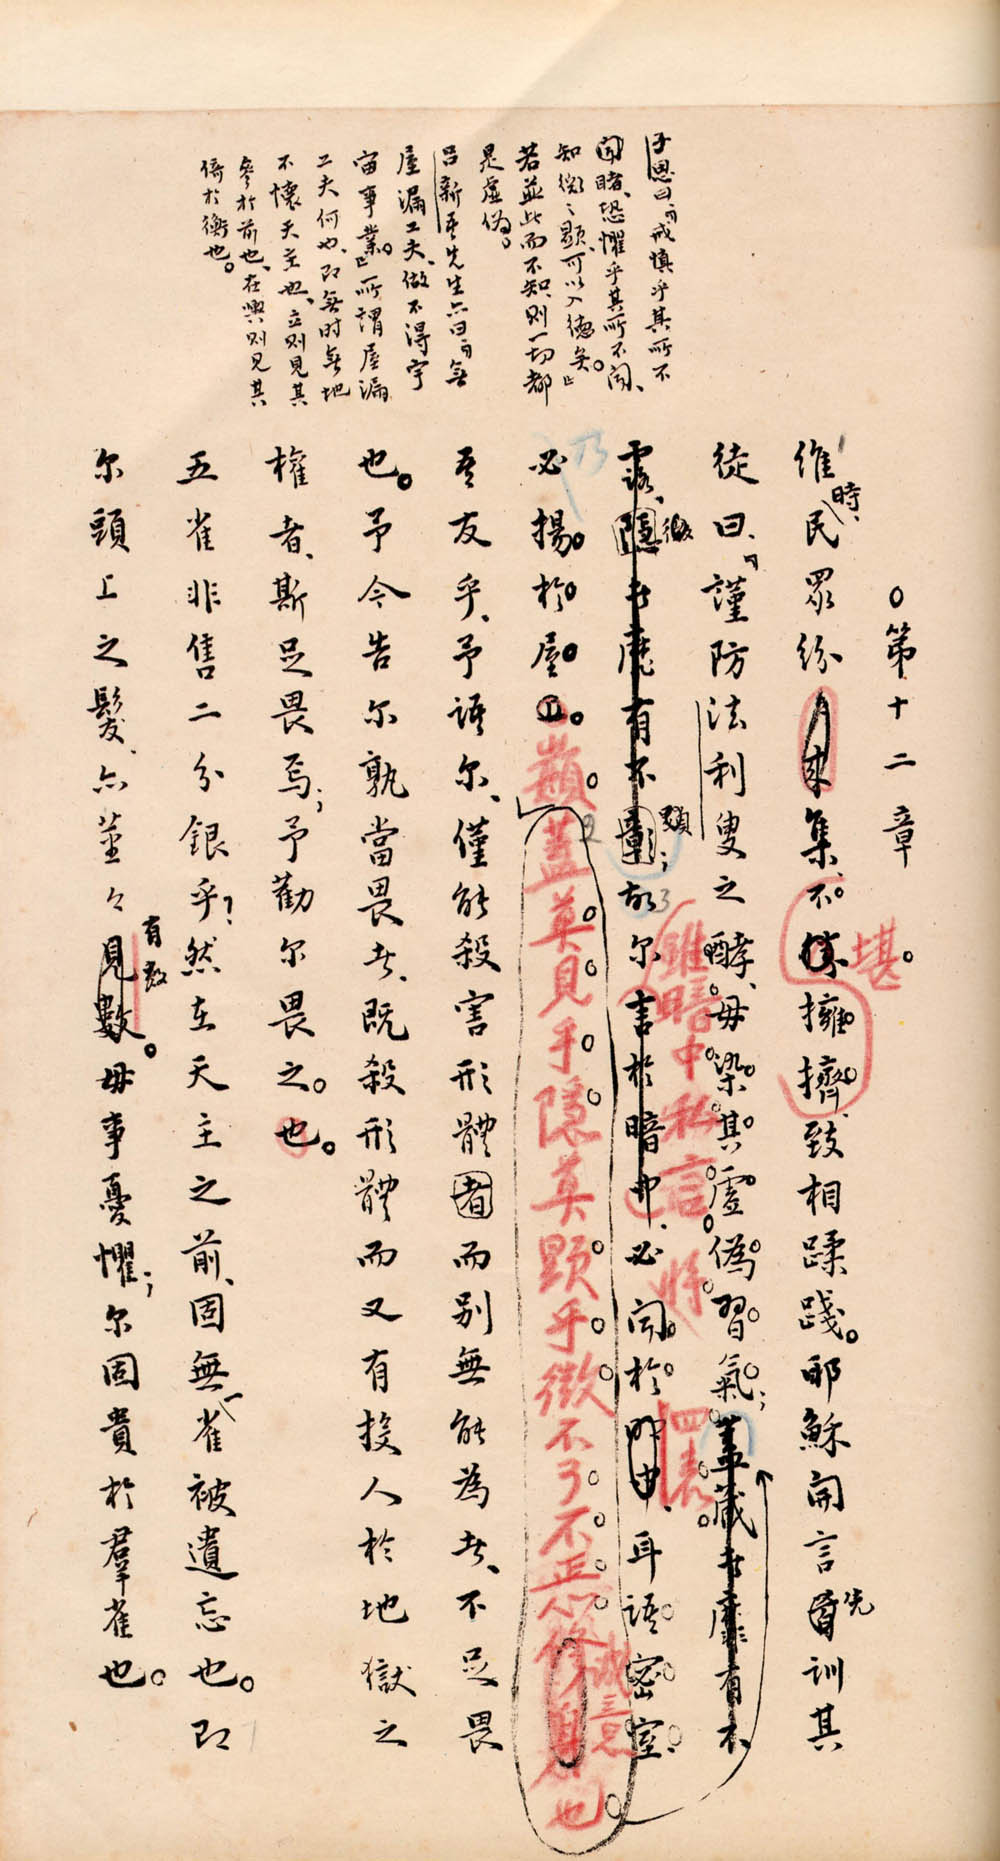 子思曰『戒慎乎其所不
聞睹、恐懼乎其所不聞、
知微之顯、可以入德矣。』
若並此而不知、則一切都
是虛偽。
呂新吾先生亦曰『無
屋漏工夫、做不得宇
宙事業。』所謂屋漏
工夫何也、即無時無地
不懷天主也、立則見其
參於前也、在輿則見其
倚於衡也。
○第十二章。
時、
維民眾紛來集、不堪擁擠、致相蹂踐。耶穌開言先訓其
徒曰、『謹防法利叟之酵、毋染其虛偽習氣；蓋藏者靡有不
雖暗中私言 將 四表
露、隱者靡有不彰；故爾言於暗中、必聞於明中、耳語密室、
微 顯
乃
必揚於屋頂。
蓋莫見乎隱莫顯乎微不可不正心修身也
誠意
吾友乎、予語爾、僅能殺害形體者而別無能為者、不足畏
也。予今告爾孰當畏者、既殺形體而又有投人於地獄之
權者、斯足畏焉；予勸爾畏之也。
五雀非售二分銀乎？然在天主之前、固無一雀被遺忘也。即
爾頭上之髮、亦莖々見數。毋事憂懼；爾固貴於羣雀也。
有數